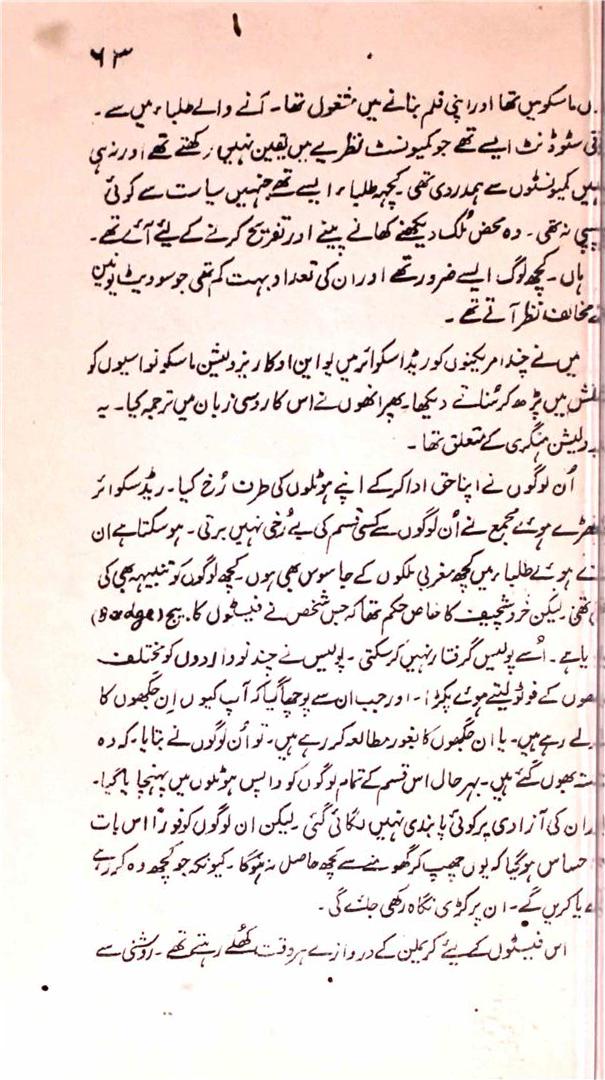 ۶۳
ں ماسکو میں تھا اور اپنی فلم بنانے میں مشغول تھا۔ آنے والے طلباء میں سے۔
سٹوڈنٹ ایسے تھے جو کمیونسٹ نظریے میں یقین نہیں رکھتے تھے اور نہ ہی
کمیونسٹوں سے ہمدردی تھی۔ کچھ طلباء ایسے تھے جنہیں سیاست سے کوئی
نہ تھی۔ وہ محض مُلک دیکھنے کھانے پینے اور تفریح کرنے کے لئے آئے تھے۔
ہاں۔ کچھ لوگ ایسے ضرور تھے اور ان کی تعداد بہت کم تھی جو سوویٹ یونین
مخالف نظر آتے تھے۔
میں نے چند امریکنوں کو ریڈ اسکوائر میں یو این او کا ریزولیشن ماسکو نواسیوں کو
میں پڑھ کر سُناتے دیکھا۔ پھر انھوں نے اس کا روسی زبان میں ترجمہ کیا۔ یہ
ولیشن ہنگری کے متعلق تھا۔
اُن لوگوں نے اپنا حق ادا کر کے اپنے ہوٹلوں کی طرف رُخ کیا۔ ریڈ سکوائر
کھڑے ہوئے مجمع نے اُن لوگوں سے کسی قسم کی بے رُخی نہیں برتی۔ ہو سکتا ہے ان
ہوئے طلباء میں کچھ مغربی ملکوں کے جاسوس بھی ہوں۔ کچھ لوگوں کو تنبیہہ بھی کی
تھی۔ لیکن خروشچیف کا خاص حکم تھا کہ جس شخص نے فیسٹوں کا۔ بیج (Badge)
یا ہے۔ اُسے پولیس گرفتار نہیں کر سکتی۔ پولیس نے چند نو واردوں کو مختلف
ھوں کے فوٹو لیتے ہوئے پکڑا۔ اور جب ان سے پوچھا گیا کہ آپ کیوں اِن جگہوں کا
لے رہے ہیں۔ یا ان جگہوں کا بغور مطالعہ کر رہے ہیں۔ تو اُن لوگوں نے بتایا۔ کہ وہ
بھول گئے ہیں۔ بہر حال اس قسم کے تمام لوگوں کو واپس ہوٹلوں میں پہنچا یا گیا۔
ان کی آزادی پر کوئی پابندی نہیں لگائی گئی۔ لیکن ان لوگوں کو فوراً اس بات
حساس ہو گیا کہ یوں چھپ کر گھومنے سے کچھ حاصل نہ ہو گا۔ کیونکہ جو کچھ وہ کر رہے
یا کریں گے۔ ان پر کڑی نگاہ رکھی جائے گی۔
اس فیسٹوں کے لیئے کریملن کے دروازے ہر وقت کھُلے رہتے تھے۔ روشنی سے